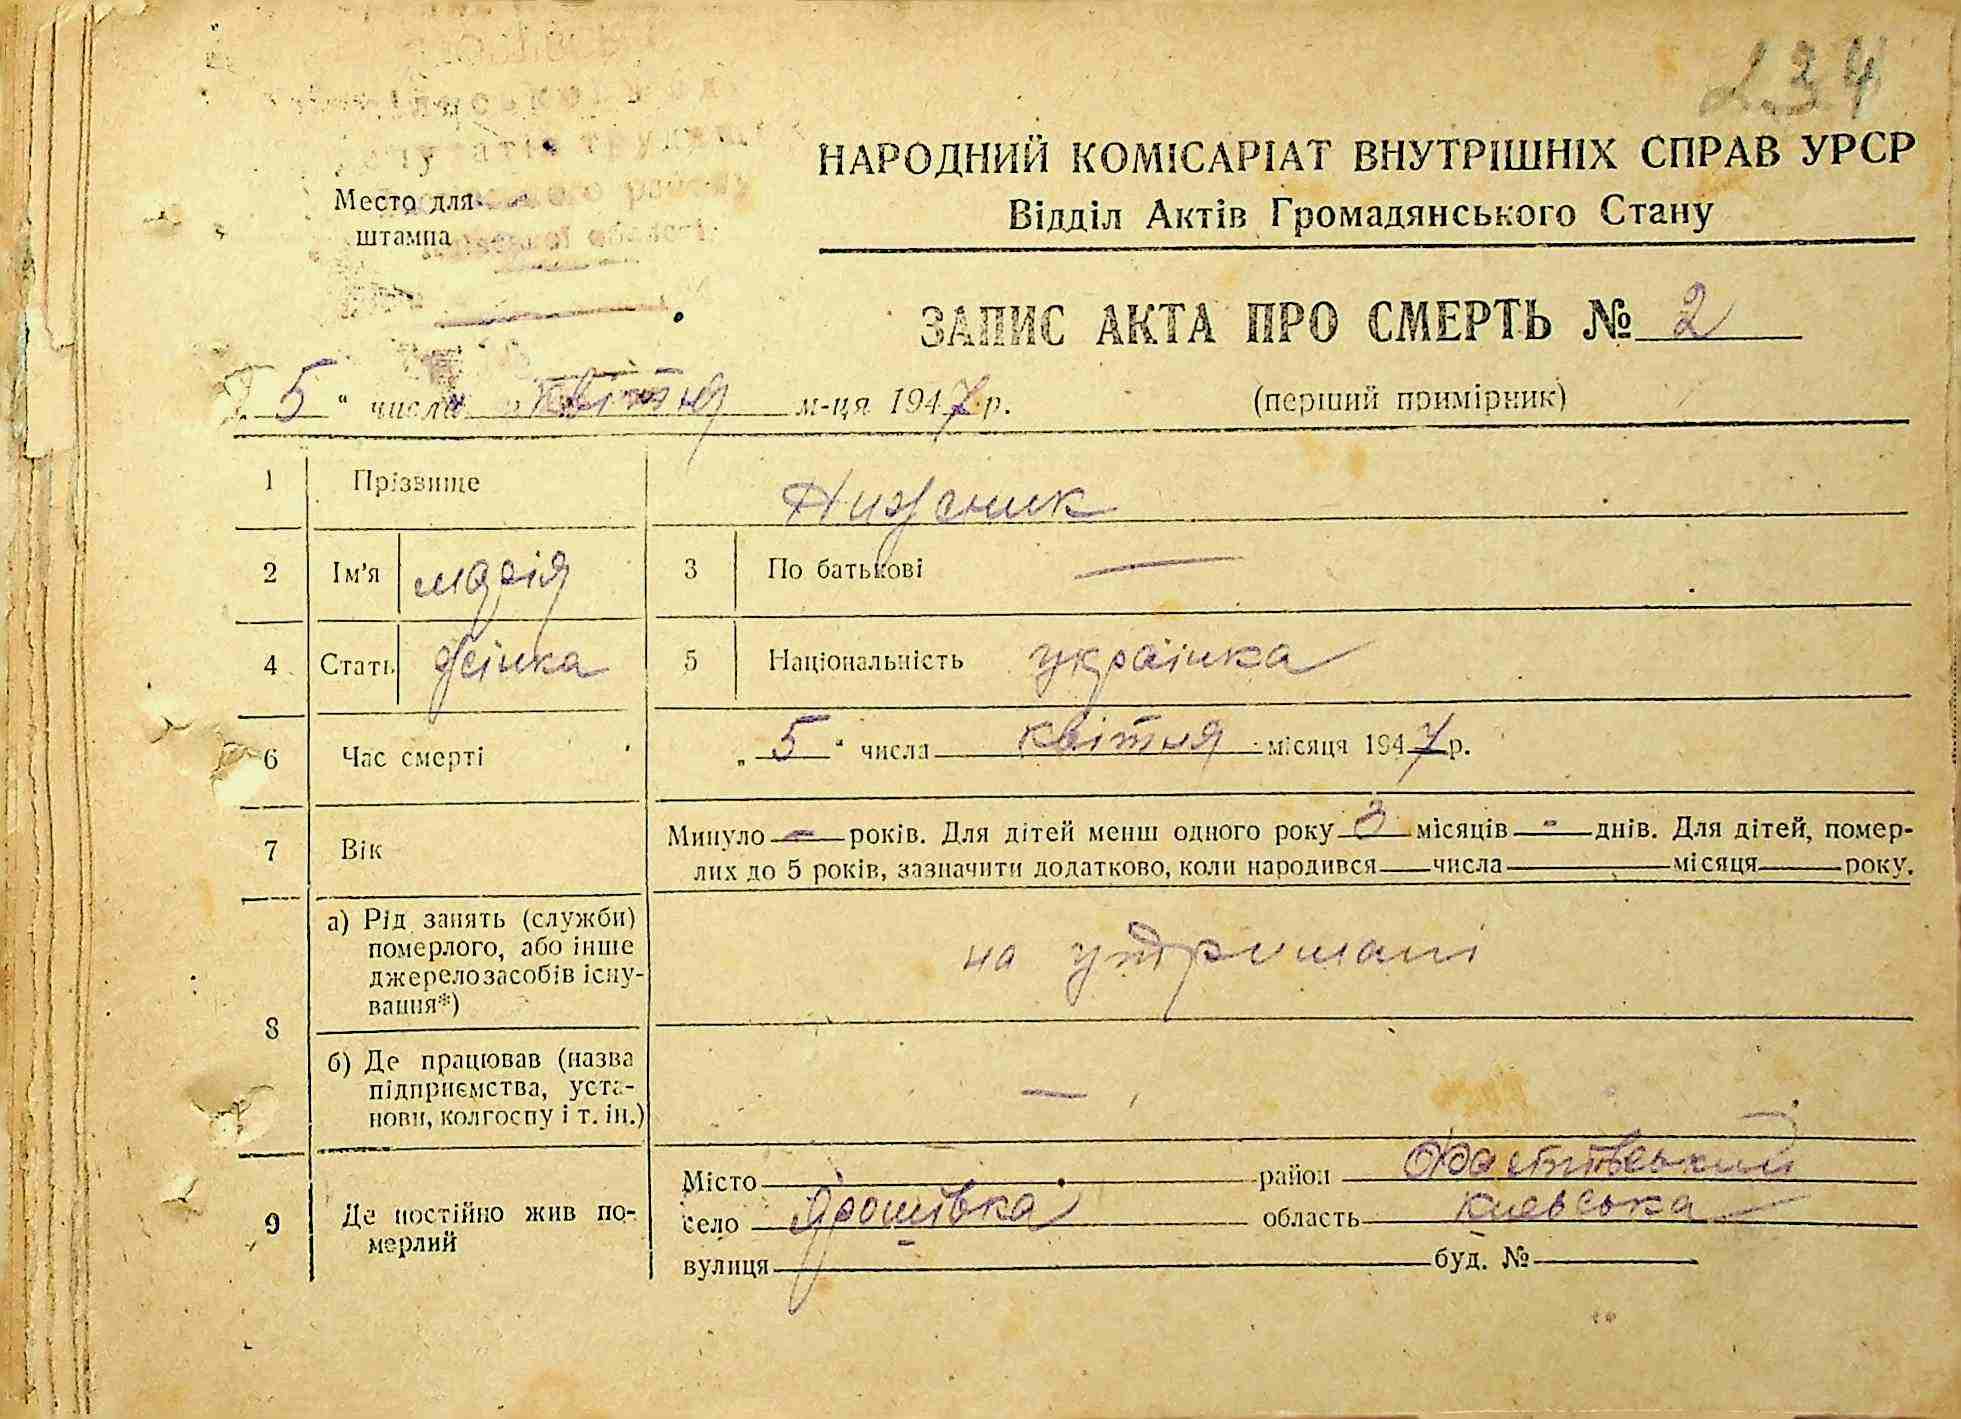 234
НАРОДНИЙ КОМІСАРІАТ ВНУТРІШНІХ СПРАВ УРСР
Відділ Актів Громадянського Стану
Место для штампа
ЗАПИС АКТА ПРО СМЕРТЬ № 2
5 " числа квітня м-ця 1947 р. (перший примірник)
1 Прізвище Нижник
2 Ім'я марія 3 По батькові —
4 Стать жінка 5 Національність українка
6 Час смерті „ 5 " числа квітня місяця 1947 р.
7 Вік Минуло — років. Для дітей менш одного року місяців - днів. Для дітей, помер-
лих до 5 років, зазначити додатково, коли народився числа місяця року.
8 а) Рід занять (служби) померлого, або інше джерело засобів існування*) на утримані
б) Де працював (назва підприємства, установи, колгоспу і т. ін.) —
9 Де постійно жив померлий Місто район Фастівський
село Ярошівка область Киевська
вулиця буд. №